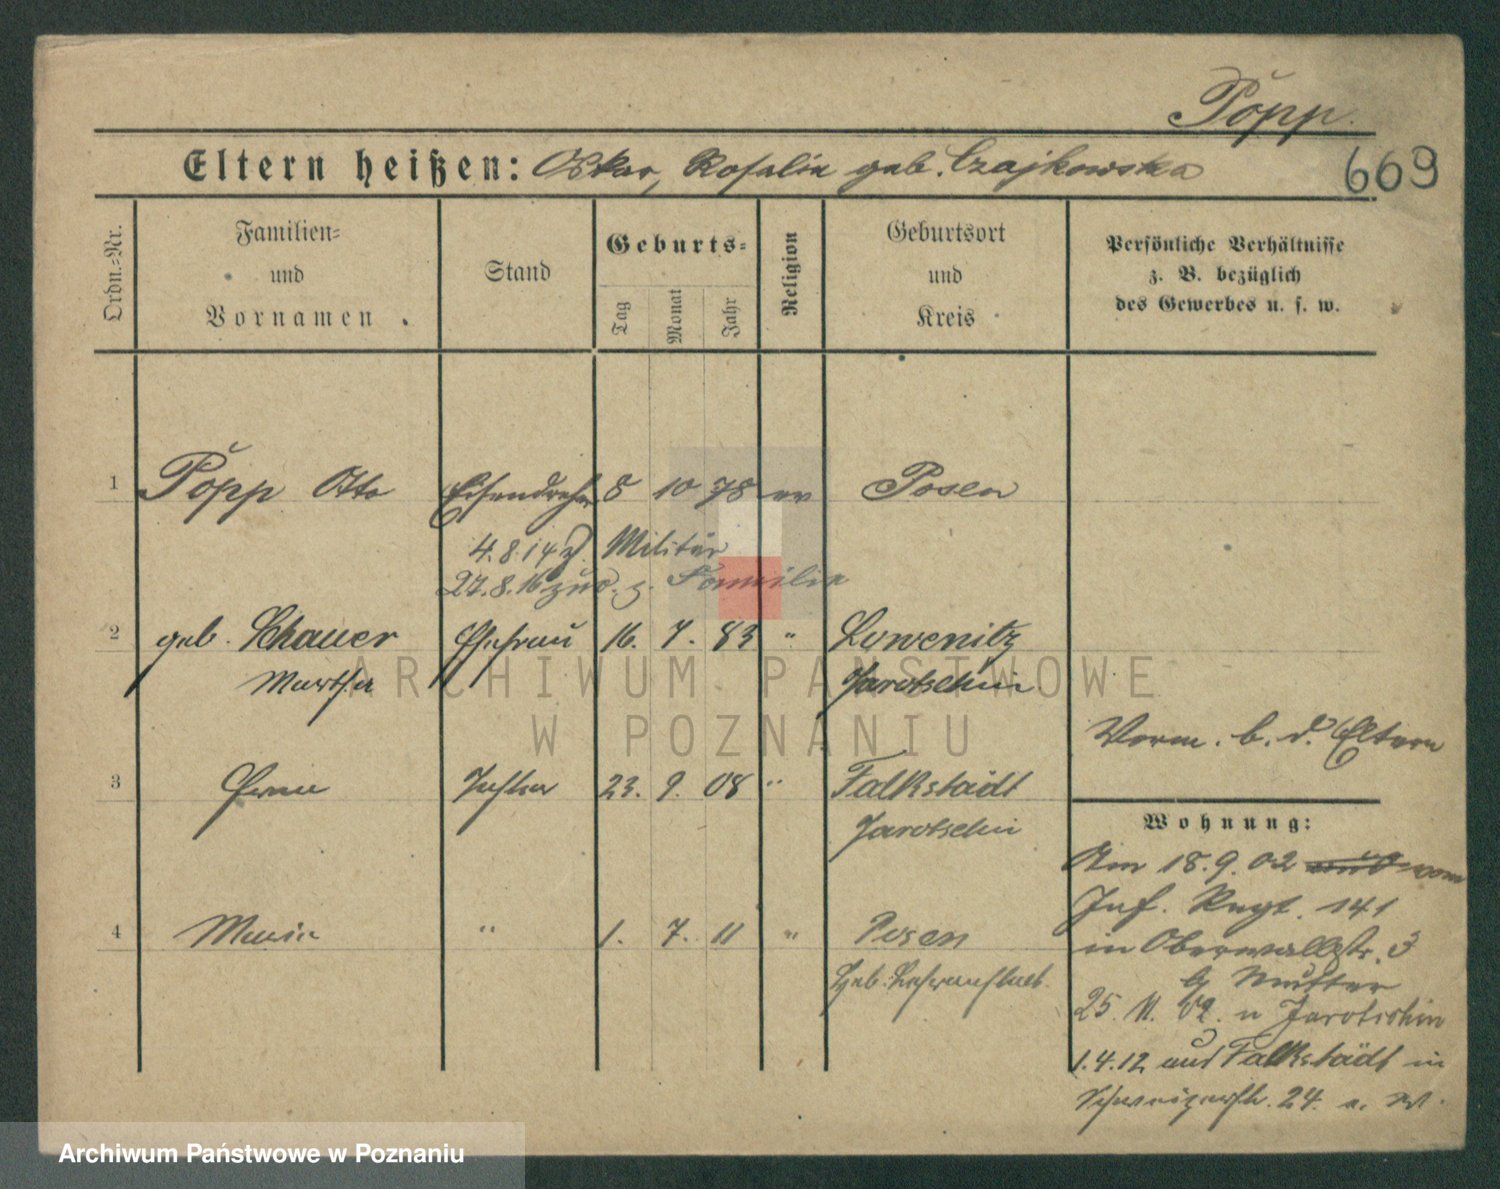 Popp.
Eltern heißen: Oskar, Rosalie geb. Czajkowska
669
Ordn.=Nr.
Familien=
und
Vornamen
Stand
Geburts=
Tag
Monat
Jahr
Religion
Geburtsort
und
Kreis
Persönliche Verhältnisse
z. B. bezüglich
des Gewerbes u. s. w.
1 Popp Otto Eisendreher 8 10 78 ev Posen
4.8.14 z. Militär
27.8.16 zur. z. Familie
2 geb. Schauer Ehefrau 16. 7. 83 " Lowenitz
Martha Jarotschin
Verm. b. d. Eltern
3 Tochter 23. 9. 08 " Falkstädt
Jarotschin
Wohnung:
Am 18.9.02 vom
Inf. Regt. 141
4 Maria " 1. 7. 11 " Posen
in Oberwallstr. 3
Heb. Lehranstalt.
b/ Mutter
25. 11. 02. n Jarotschin
1.4.12 aus Falkstädt in
24. a. W.
ARCHIWUM PAŃSTWOWE
W POZNANIU
Archiwum Państwowe w Poznaniu